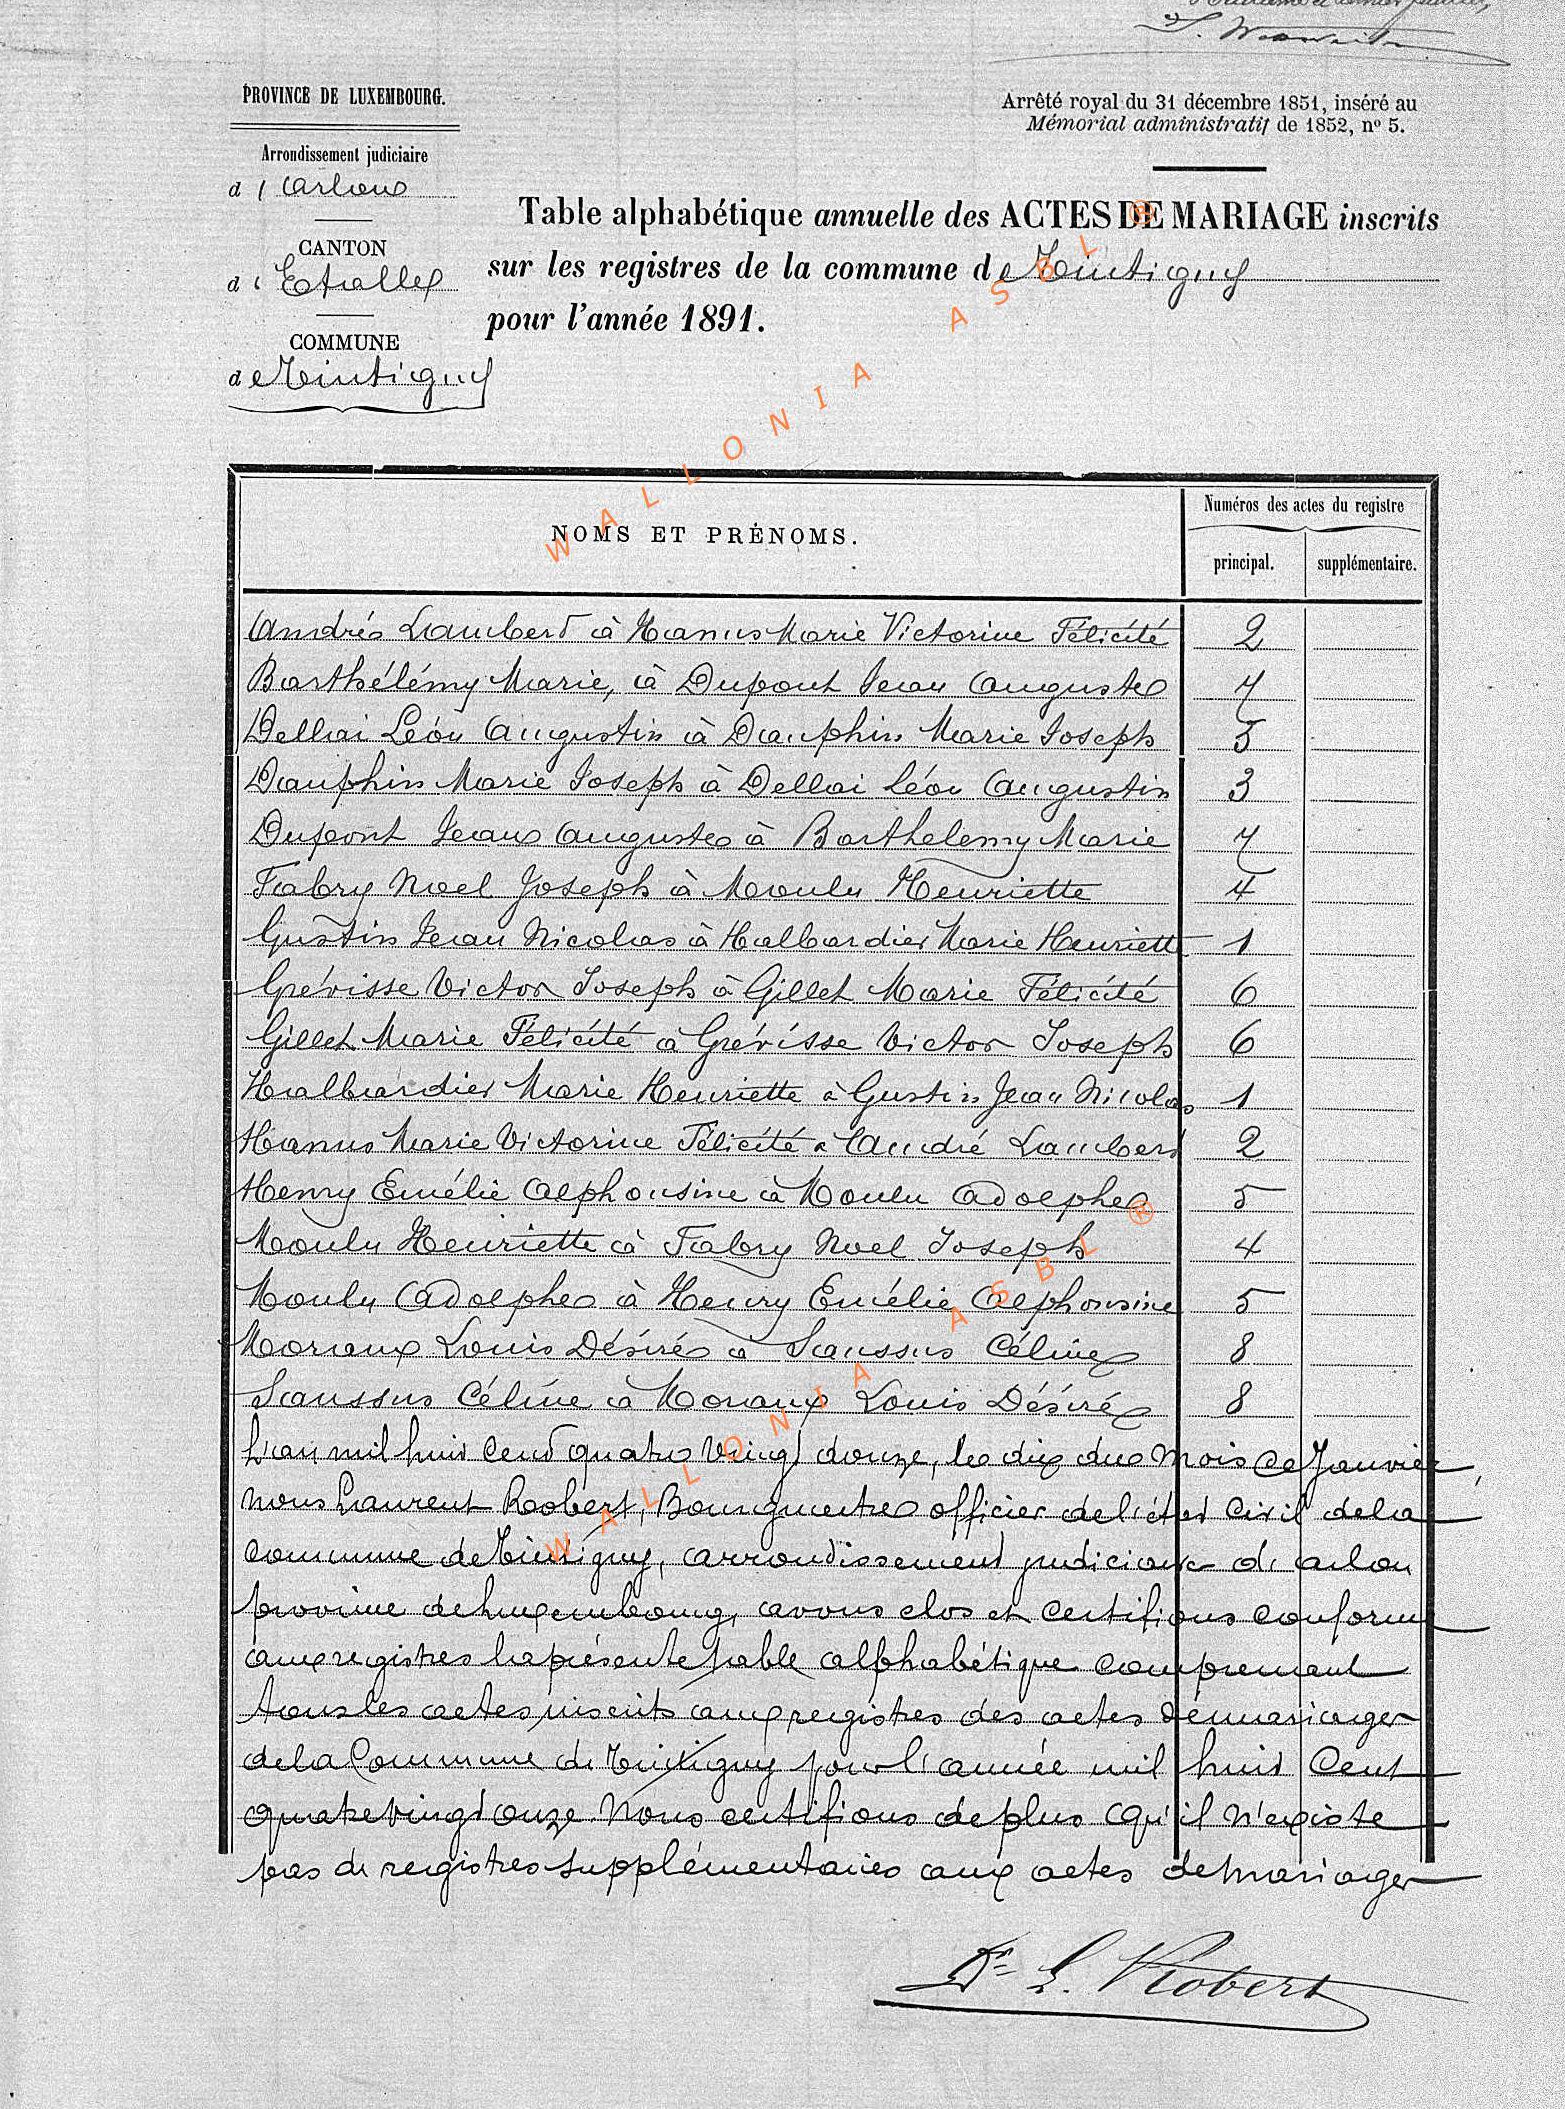 PROVINCE DE LUXEMBOURG.
Arrondissement judiciaire
d'Arlon
CANTON
d'Etalle
COMMUNE
de Tintigny
Arrêté royal du 31 décembre 1851, inséré au
Mémorial administratif de 1852, nº 5.
Table alphabétique annuelle des ACTES DE MARIAGE inscrits
sur les registres de la commune de Tintigny
pour l'année 1891.
WALLONIA ASBL®
NOMS ET PRÉNOMS.
Numéros des actes du registre
principal. supplémentaire.
André Lambert à Hanus Marie Victorine Félicité 2
Barthélémy Marie, à Dupont Jean Auguste 7
Dellai Léon Augustin à Dauphin Marie Joseph 3
Dauphin Marie Joseph à Dellai Léon Augustin 3
Dupont Jean Auguste à Barthelemy Marie 7
Fabry Noel Joseph à Moulu Henriette 4
Gustin Jean Nicolas à Halbardier Marie Henriette 1
Grévisse Victor Joseph à Gillet Marie Félicité 6
Gillet Marie Félicité à Grévisse Victor Joseph 6
Halbardier Marie Henriette à Gustin Jean Nicolas 1
Hanus Marie Victorine Félicité à André Lambert 2
Henry Emélie Alphonsine à Moulu Adolphe 5
Moulu Henriette à Fabry Noel Joseph 4
Moulu Adolphe à Henry Emélie Alphonsine 5
Moriaux Louis Désiré à Saussus Céline 8
Saussus Céline à Moriaux Louis Désiré 8
WALLONIA ASBL®
L'an mil huit cent quatre vingt douze, le dix du mois de Janvier,
nous Laurent Robert, Bourgmestre officier de l'état civil de la
commune de Tintigny, arrondissement judiciaire d'Arlon
province de Luxembourg, avons clos et certifions conforme
aux registres la présente table alphabétique comprenant
tous les actes inscrits aux registres des actes de mariage
de la Commune de Tintigny pour l'année mil huit cent
quatre vingt onze. Nous certifions de plus qu'il n'existe
pas de registres supplémentaires aux actes de mariage
Dr L. Robert